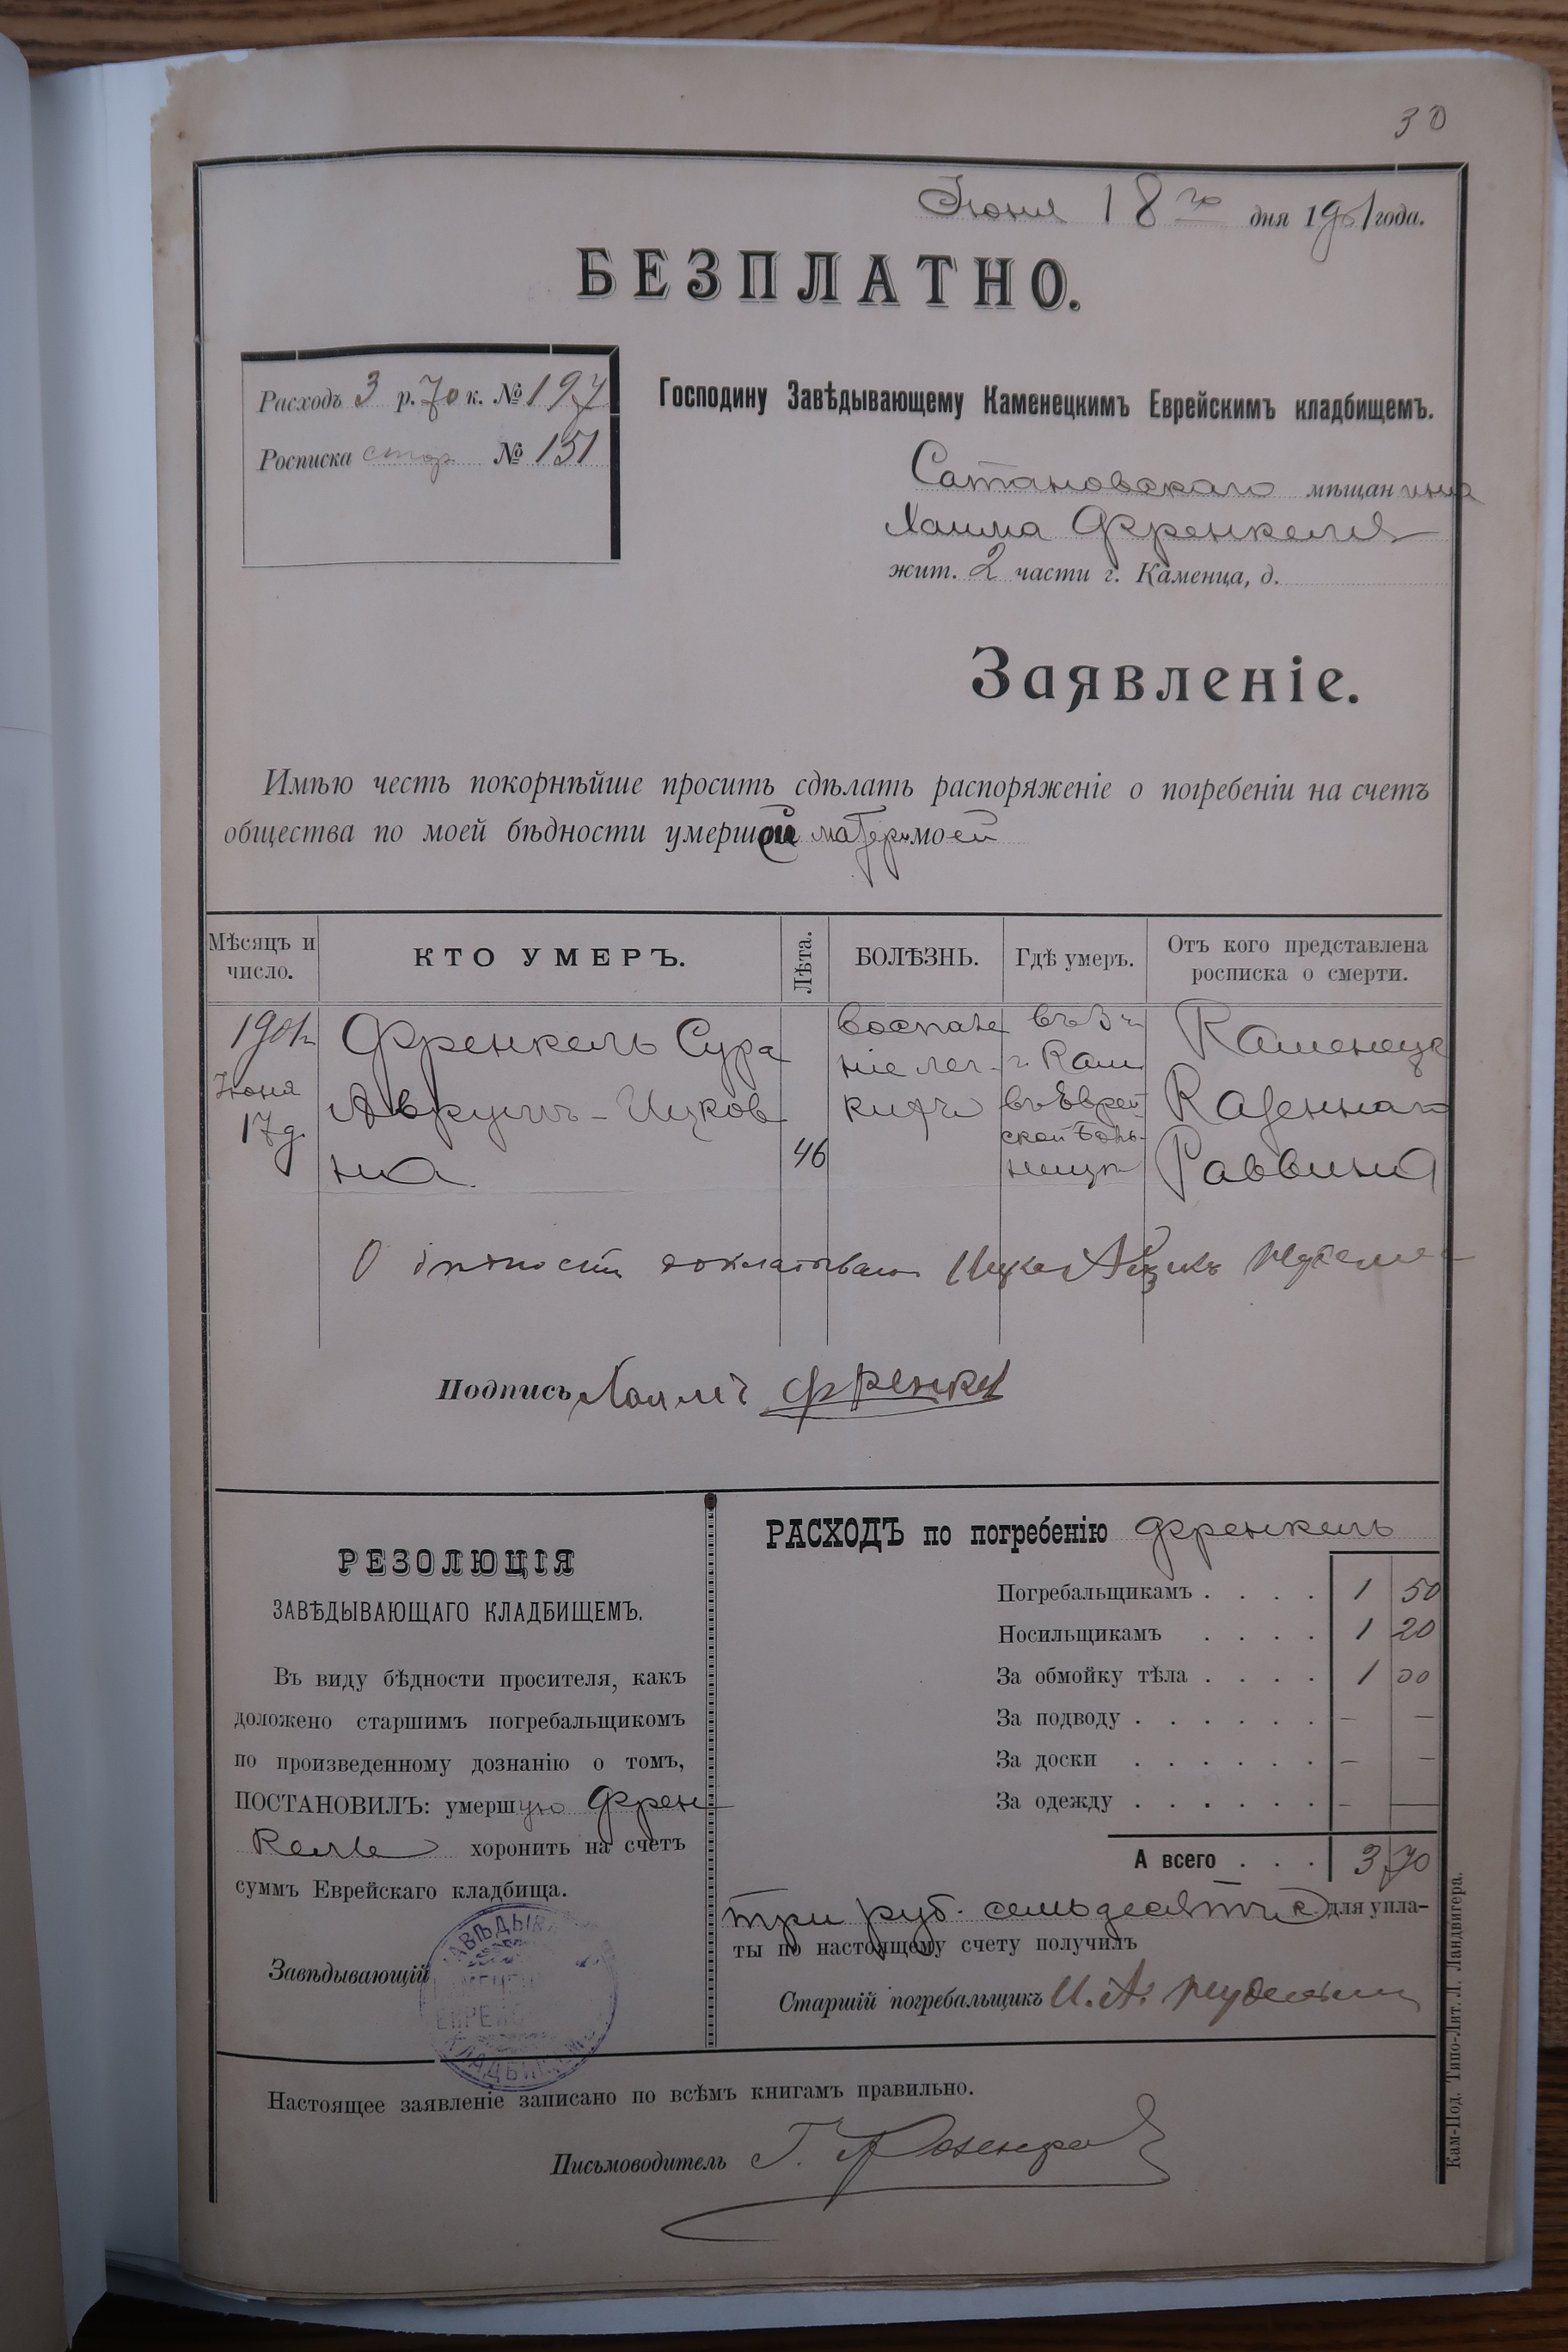 30
Іюня 18го дня 1901 года.
БЕЗПЛАТНО.
Расходъ 3 р. 70 к. № 197
Росписка стор. № 151
Господину Завѣдывающему Каменецкимъ Еврейскимъ кладбищемъ.
Сатановскаго мѣщанина
Хаима Френкеля
жит. 2 части г. Каменца, д.
Заявленіе.
Имѣю честь покорнѣйше просить сдѣлать распоряженіе о погребеніи на счетъ
общества по моей бѣдности умершей матери моей
Мѣсяцъ и число. КТО УМЕРЪ. Лѣта. БОЛѢЗНЬ. Гдѣ умеръ. Отъ кого представлена росписка о смерти.
1901 Френкель Сура воспале въ 3 ч Каменецк
Іюня ніе лег г. Кам
17 д. Аврумъ-Ицков кихъ въ Еврей Казеннаго
на 46 ской боль- Раввина
ницѣ
О бѣдности докладываю Ицко Айзикъ
Подпись Хаимъ Френкел
РЕЗОЛЮЦІЯ
ЗАВѢДЫВАЮЩАГО КЛАДБИЩЕМЪ.
Въ виду бѣдности просителя, какъ
доложено старшимъ погребальщикомъ
по произведенному дознанію о томъ,
ПОСТАНОВИЛЪ: умершую Френ
кель хоронить на счетъ
суммъ Еврейскаго кладбища.
Завѣдывающій
РАСХОДЪ по погребенію Френкель
Погребальщикамъ . . . . 1 50
Носильщикамъ . . . . 1 20
За обмойку тѣла . . . . 1 00
За подводу . . . . . . — —
За доски . . . . . . — —
За одежду . . . . . . — —
А всего . . . 3 70
три руб. семьдесятъ к. для упла-
ты по настоящему счету получилъ
Старшій погребальщикъ И. А.
Настоящее заявленіе записано по всѣмъ книгамъ правильно.
Письмоводитель Г.
Кам-Под. Типо-Лит. Л. Ландвигера.